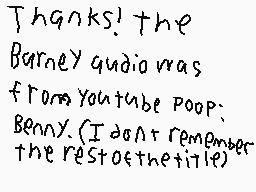 Thanks! the
Barney audio was
from youtube poop:
Benny. (I dont remember
the rest of the title)